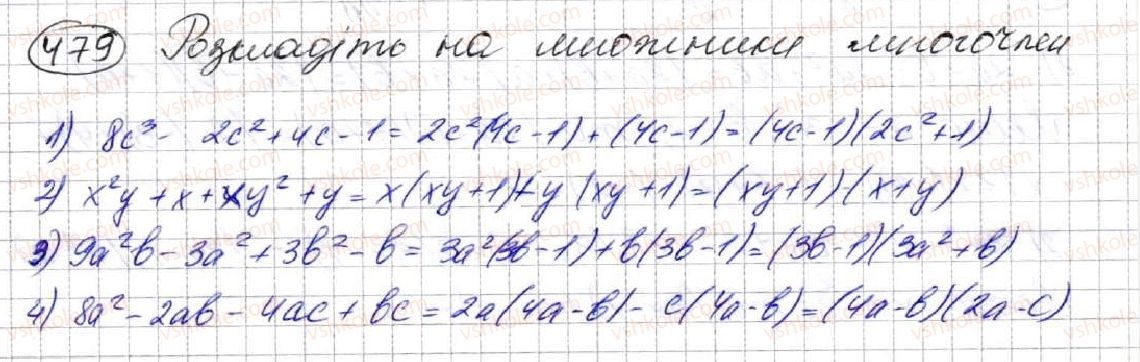 479 Розкладіть на множники многочлен
1) 8c³ - 2c² + 4c - 1 = 2c²(4c - 1) + (4c - 1) = (4c - 1)(2c² + 1)
2) x²y + x + xy² + y = x(xy + 1) + y(xy + 1) = (xy + 1)(x + y)
3) 9a²b - 3a² + 3b² - b = 3a²(3b - 1) + b(3b - 1) = (3b - 1)(3a² + b)
4) 8a² - 2ab - 4ac + bc = 2a(4a - b) - c(4a - b) = (4a - b)(2a - c)